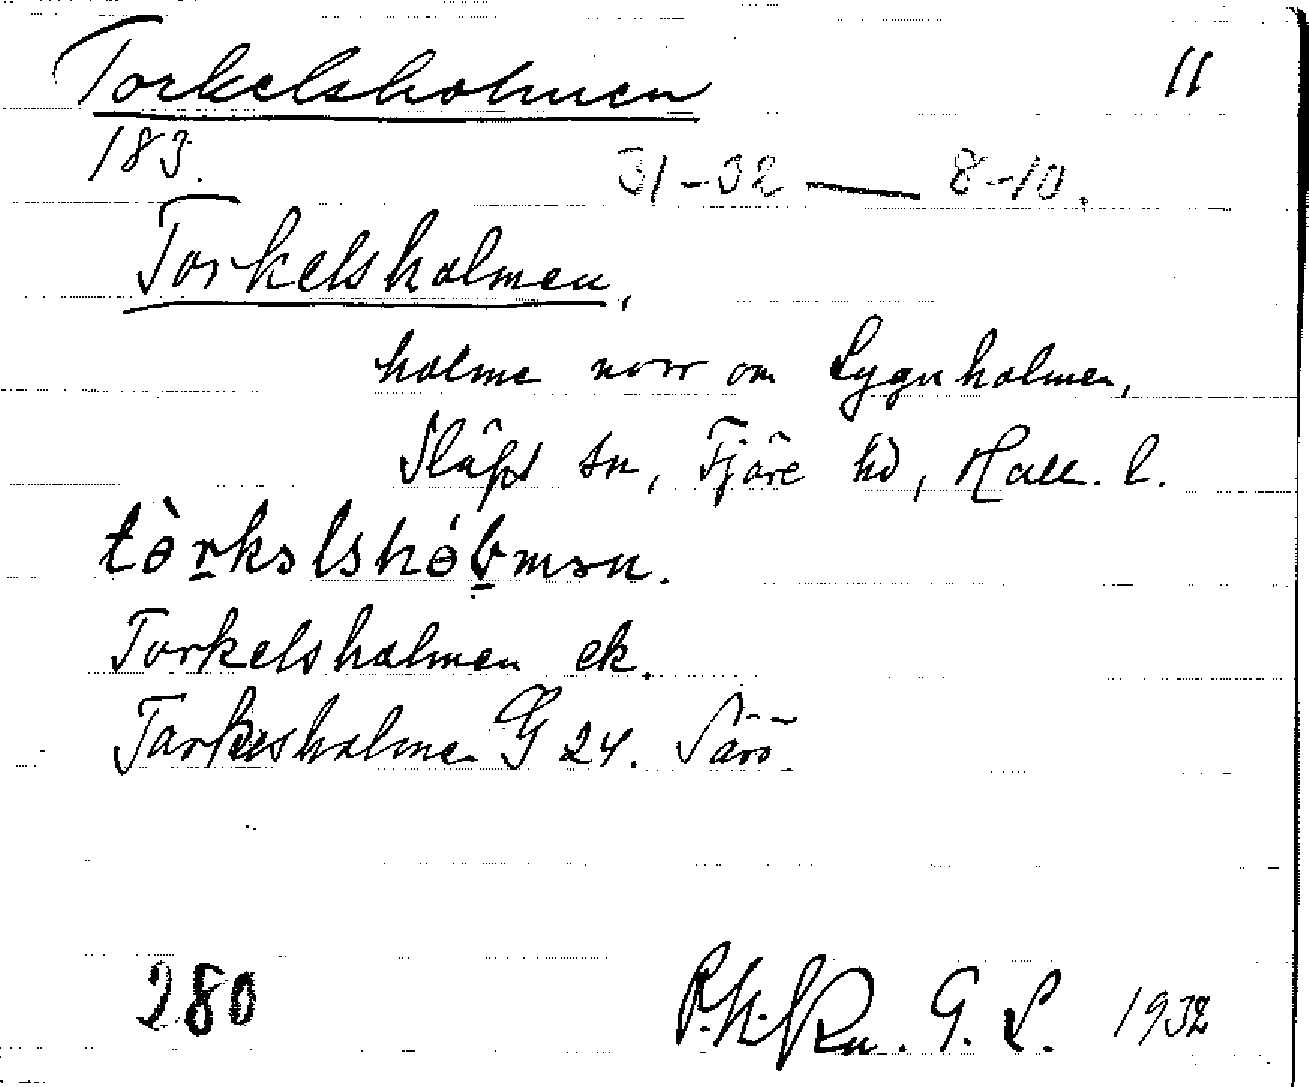 Torkelsholmen 11
183.
31-32 — 8-10.
Torkelsholmen,
holme norr om Lygnholmen,
Släps sn, Fjäre hd, Hall. l.
tòrkəlshólmən.
Torkelsholmen ek.
Torkesholmen G 24. Särö
280 G. L. 1932